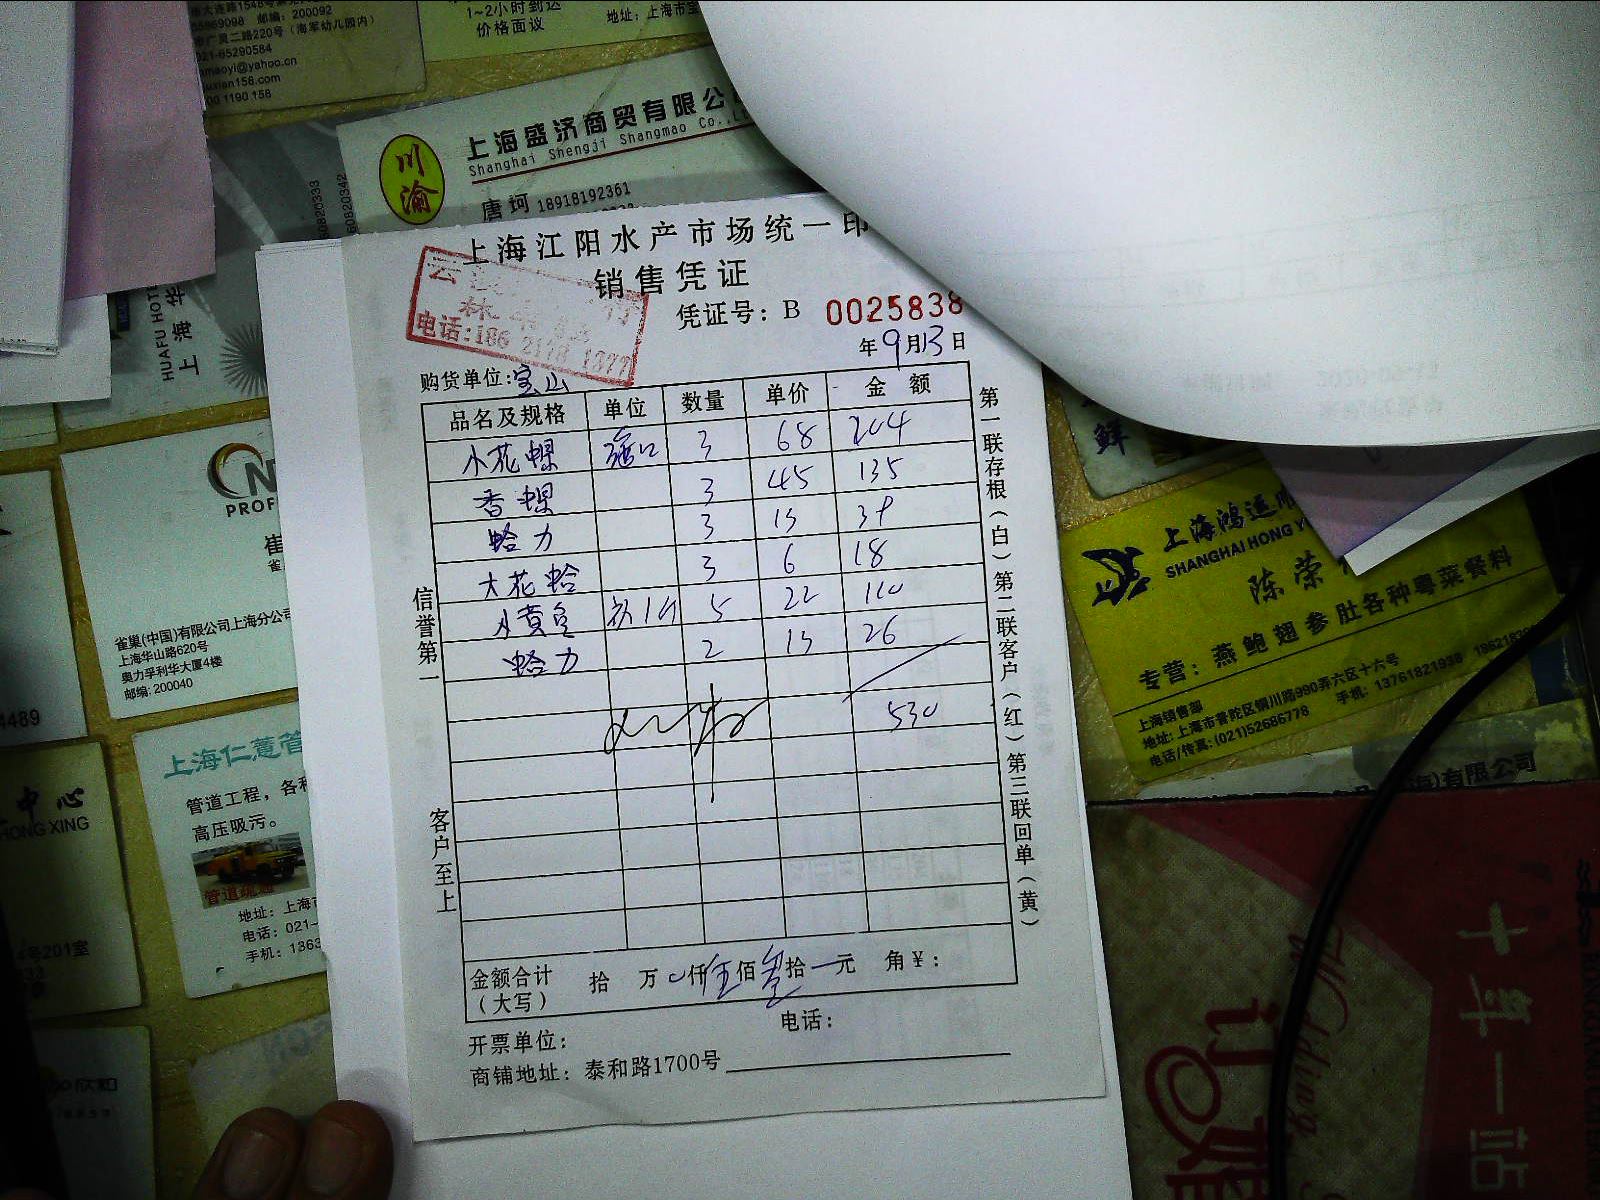 1~2小时到达
价格面议
地址：上海市宝
邮编：200092
广灵二路220号（海军幼儿园内）
021-65290584
maoyi@yahoo.cn
uxian158.com
00 1190 158
川渝
上海盛济商贸有限公
Shanghai Shengji Shangmao Co.,Lt
唐珂 18918192361
HUAFU HOTE
上海华
上海江阳水产市场统一印
销售凭证
凭证号：B 0025838
电话:186 2178 1377
年9月13日
购货单位：宝山
品名及规格 单位 数量 单价 金额
小花螺 3 68 204
香螺 3 45 135
蛤力 3 13 39
大花蛤 3 6 18
小黄鱼 5 22 110
蛤力 2 13 26
530
金额合计（大写） 拾 万 0仟伍佰叁拾一元 角￥：
开票单位： 电话：
商铺地址：泰和路1700号
信誉第一
客户至上
第一联存根（白）第二联客户（红）第三联回单（黄）
PROF
崔
雀巢(中国)有限公司上海分公司
上海华山路620号
奥力孚利华大厦4楼
邮编: 200040
4489
上海仁薏管
管道工程，各种
高压吸污。
管道疏通
地址：上海市
电话：021-
手机：1363
中心
HONG XING
4号201室
鲜
上海鸿运
SHANGHAI HONG Y
陈荣
专营：燕鲍翅参肚各种粤菜餐料
上海销售部
地址：上海市普陀区铜川路990弄六区十六号
电话/传真：(021)52686778 手机：13761821938
海)有限公司
Wedding
订婚
十年一站